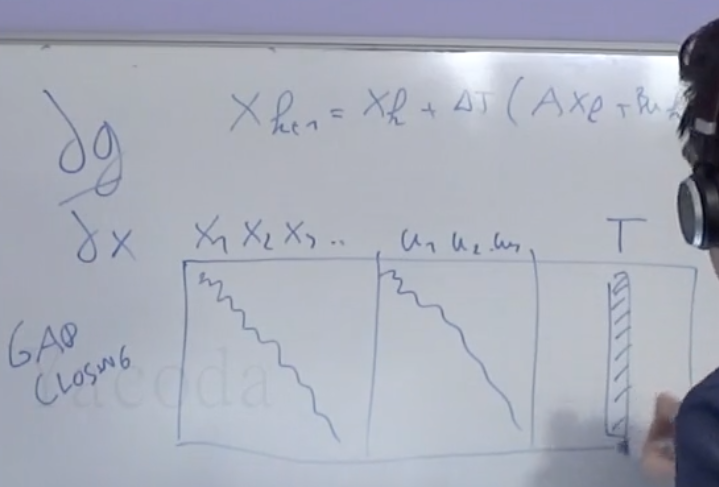 ∂g
∂x
X_{k+1} = X_k + ΔT ( A X_k + Bu_k
X_1 X_2 X_3 .. u_1 u_2 .. u_3 T
GAP
CLOSING
acoda